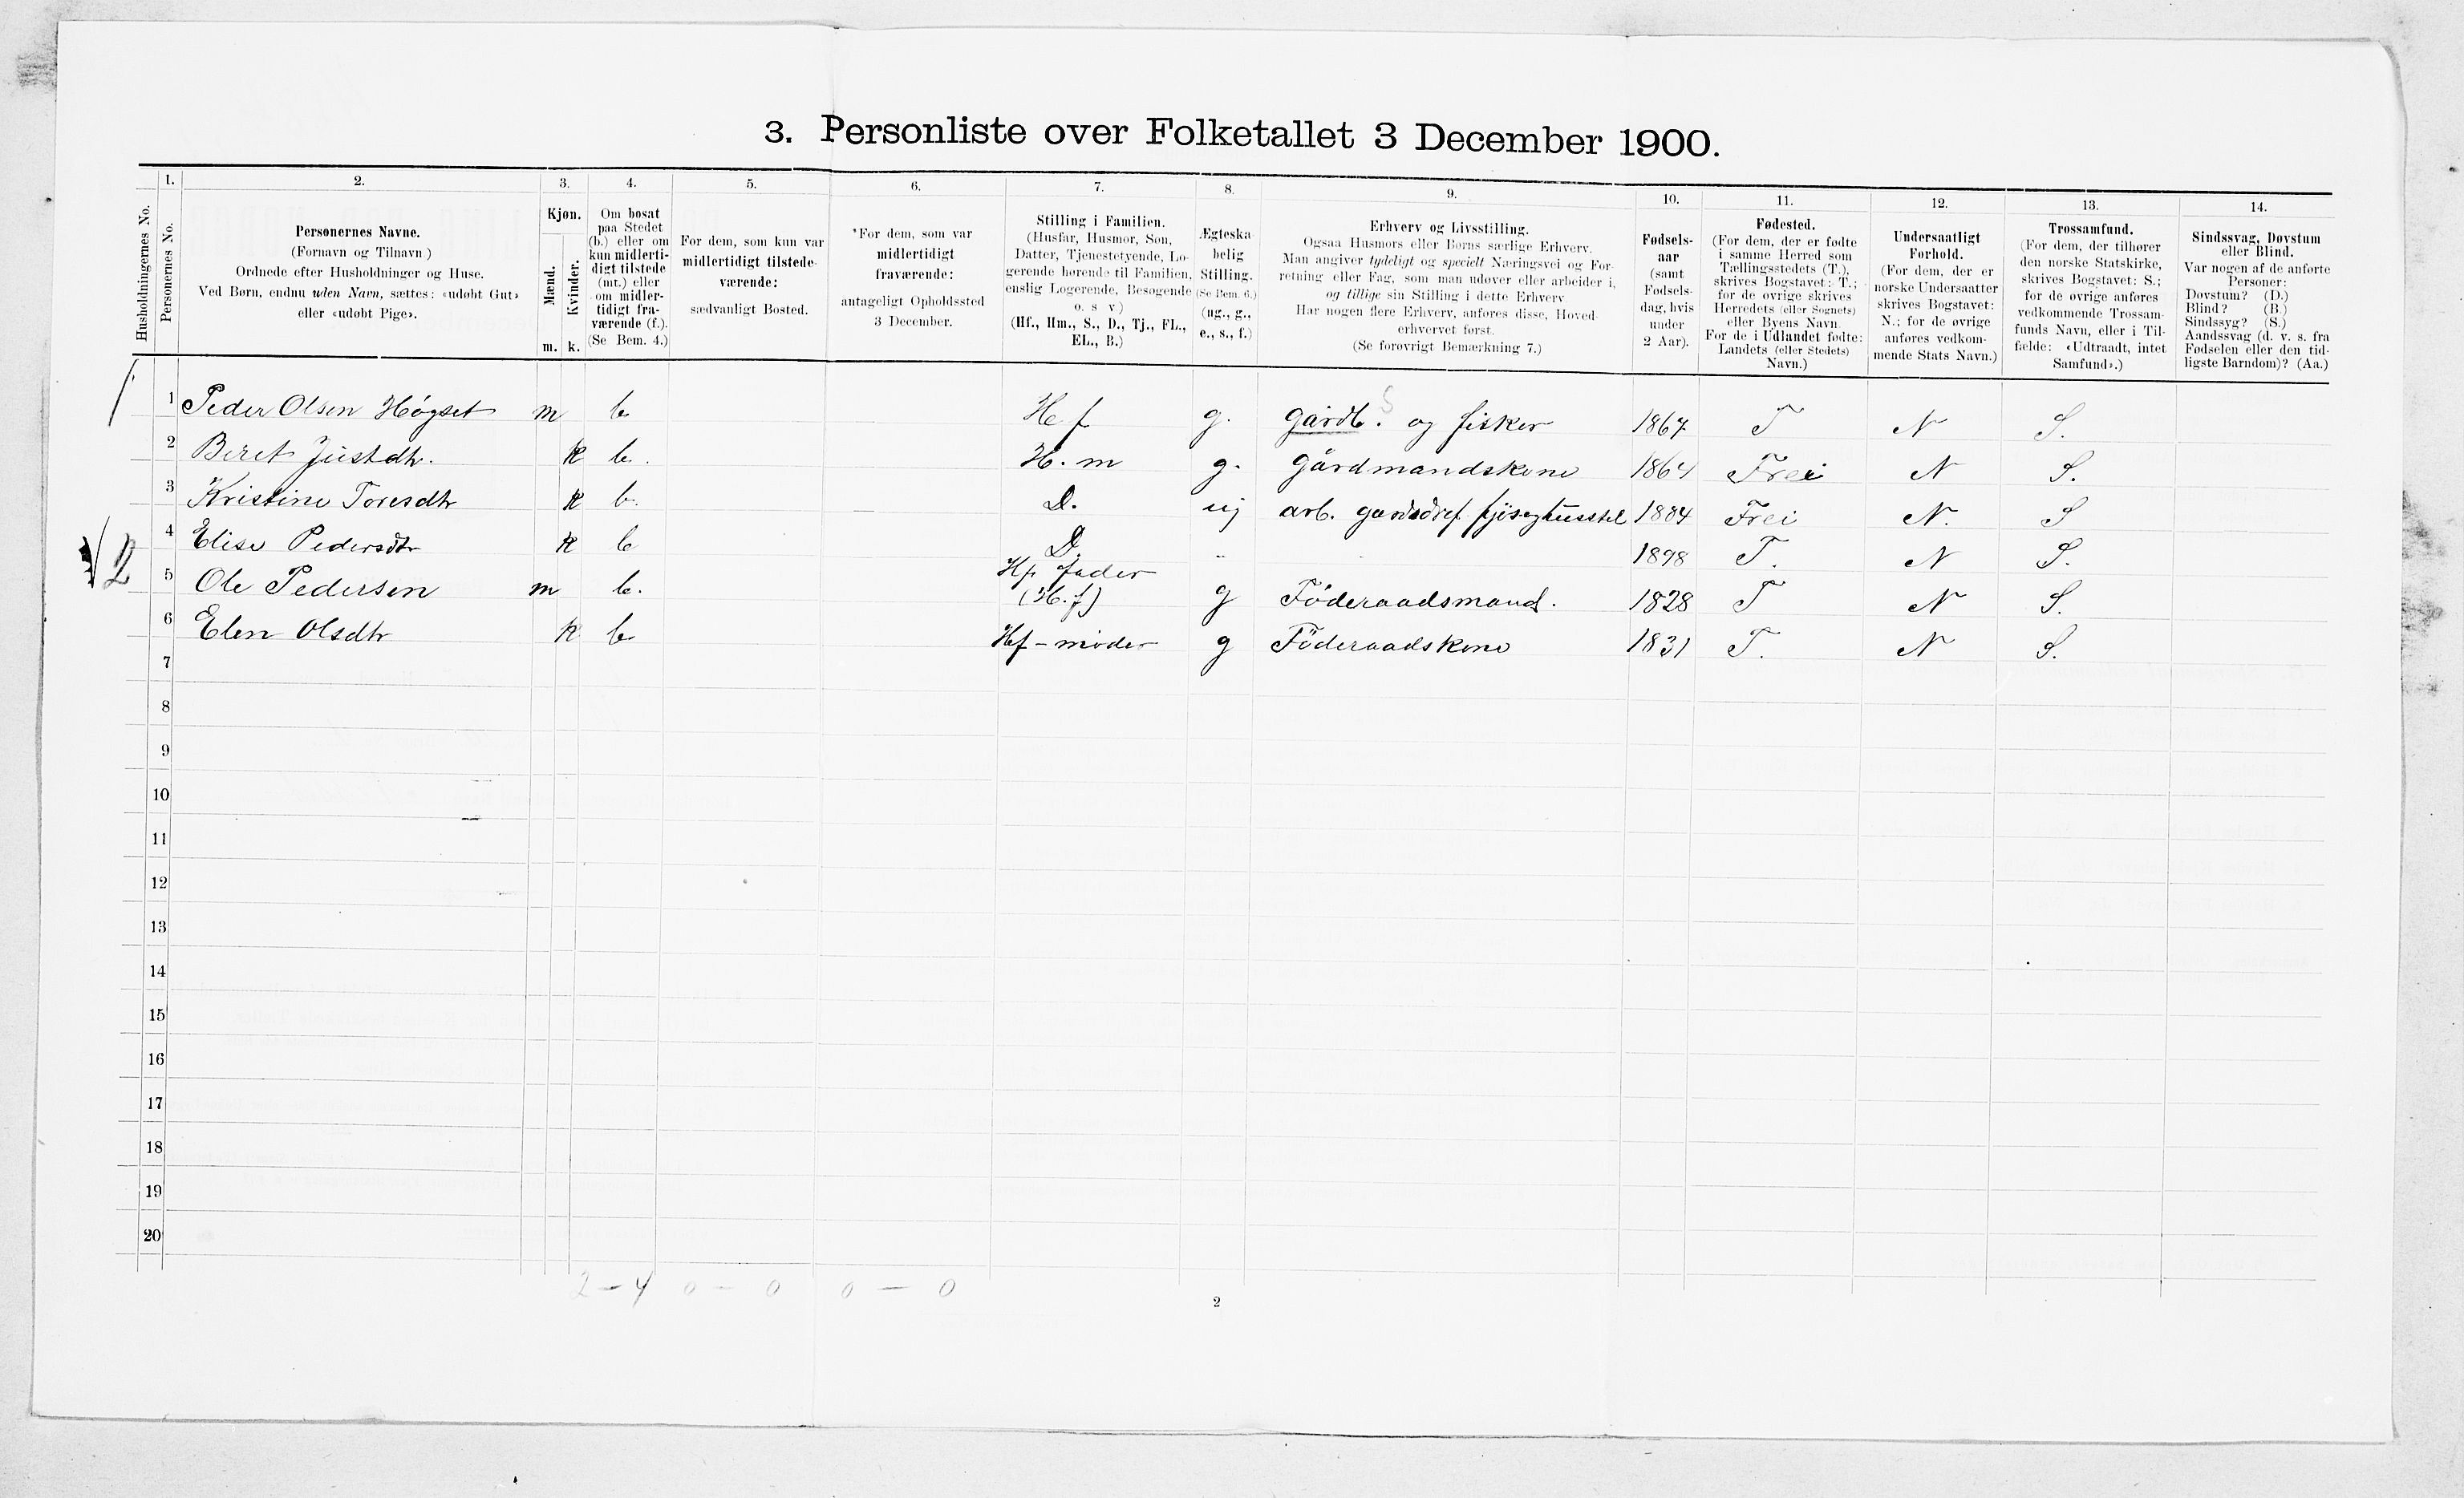 3. Personliste over Folketallet 3 December 1900.
Husholdningernes No.
1.
Personernes No.
2.
Personernes Navne.
(Fornavn og Tilnavn)
Ordnede efter Husholdninger og Huse.
Ved Børn, endnu uden Navn, sættes: «udøbt Gut»
eller «udøbt Pige».
3.
Kjøn.
Mænd.
Kvinder.
m. k.
4.
Om bosat
paa Stedet
(b.) eller om
kun midlerti-
digt tilstede
(mt.) eller
om midler-
tidigt fra-
værende (f.).
(Se Bem. 4.)
5.
For dem, som kun var
midlertidigt tilstede-
værende:
sædvanligt Bosted.
6.
*For dem, som var
midlertidigt
fraværende:
antageligt Opholdssted
3 December.
7.
Stilling i Familien.
(Husfar, Husmor, Søn,
Datter, Tjenestetyende, Lo-
gerende hørende til Familien,
enslig Logerende, Besøgende
o. s v)
(Hf., Hm., S., D., Tj., FL.,
EL., B.)
8.
Ægteska-
belig
Stilling.
(Se Bem. 6.)
(ug., g.,
e., s., f.)
9.
Erhverv og Livsstilling.
Ogsaa Husmors eller Børns særlige Erhverv.
Man angiver tydeligt og specielt Næringsvei og For-
retning eller Fag, som man udøver eller arbeider i,
og tillige sin Stilling i dette Erhverv
Har nogen flere Erhverv, anføres disse, Hoved-
erhvervet først.
(Se forøvrigt Bemærkning 7.)
10.
Fødsels-
aar
(samt
Fødsels-
dag, hvis
under
2 Aar).
11.
Fødested.
(For dem, der er fødte
i samme Herred som
Tællingsstedets (T.),
skrives Bogstavet: T.;
for de øvrige skrives
Herredets (eller Sognets)
eller Byens Navn.
For de i Udlandet fødte:
Landets (eller Stedets)
Navn.)
12.
Undersaatligt
Forhold.
(For dem, der er
norske Undersaatter
skrives Bogstavet:
N.; for de øvrige
anføres vedkom-
mende Stats Navn.)
13.
Trossamfund.
(For dem, der tilhører
den norske Statskirke,
skrives Bogstavet: S.;
for de øvrige anføres
vedkommende Trossam-
funds Navn, eller i Til-
fælde: «Udtraadt, intet
Samfund».)
14.
Sindssvag, Døvstum
eller Blind.
Var nogen af de anførte
Personer:
Døvstum? (D.)
Blind? (B.)
Sindssyg? (S.)
Aandssvag (d. v. s. fra
Fødselen eller den tid-
ligste Barndom)? (Aa.)
1 Peder Olsen Högset m b Hf g. gårdb. S og fisker 1867 T N S.
2 Beret Justdtr. k b. H. m g. gårdmandskone 1864 Frei N S.
3 Kristine Toresdtr k b. D. ug arb. gardsdrif fjøs og husstel 1884 Frei N. S
4 Elise Pedersdtr k b D. „ 1898 T. N S.
2
5 Ole Pedersen m b. Hf fader (H. f) g Föderaadsmand. 1828 T N S.
6 Elen Olsdtr k b Hf - moder g Föderaadskone 1831 T. N S.
7
8
9
10
11
12
13
14
15
16
17
18
19
20
2 - 4 0 - 0 0 - 0
2